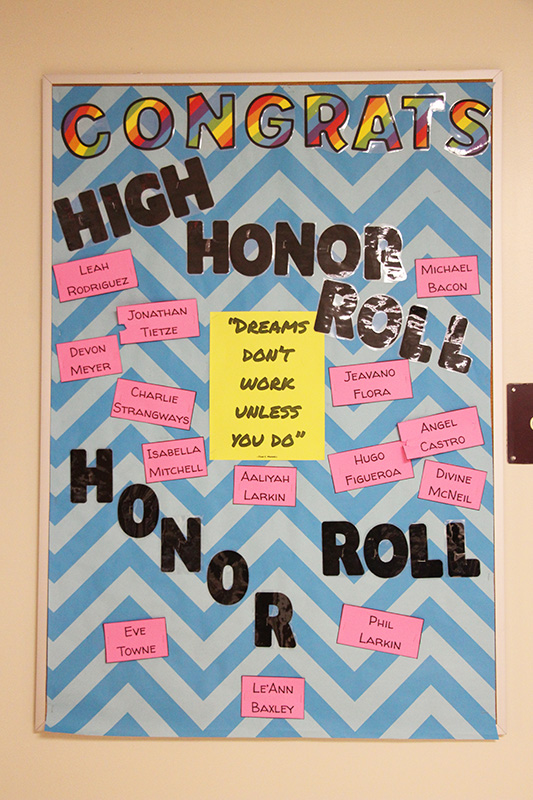 CONGRATS
HIGH
HONOR
ROLL
LEAH
RODRIGUEZ
MICHAEL
BACON
JONATHAN
TIETZE
DEVON
MEYER
"DREAMS
DON'T
WORK
UNLESS
YOU DO"
JEAVANO
FLORA
CHARLIE
STRANGWAYS
ANGEL
CASTRO
ISABELLA
MITCHELL
HUGO
FIGUEROA
AALIYAH
LARKIN
DIVINE
MCNEIL
HONOR
ROLL
EVE
TOWNE
PHIL
LARKIN
LE'ANN
BAXLEY